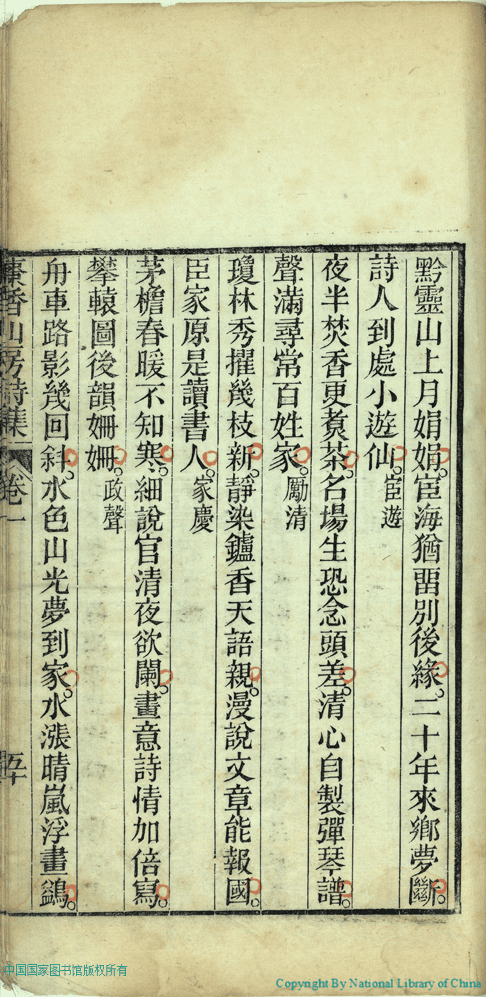 黔靈山上月娟娟宦海猶畱別後緣二十年來鄉夢斷
詩人到處小遊仙宦遊
夜半焚香更煑茶名場生恐念頭差清心自製彈琴譜
聲滿尋常百姓家勵清
瓊林秀擢幾枝新靜染鑪香天語親漫說文章能報國
臣家原是讀書人家慶
茅檐春暖不知寒細說官清夜欲闌畫意詩情加倍寫
攀轅圖後韻姍姍政聲
舟車路影幾回斜水色山光夢到家水漲晴嵐浮畫鷁
香山房詩集 卷一 五十
中国国家图书馆版权所有
Copyright By National Library of China